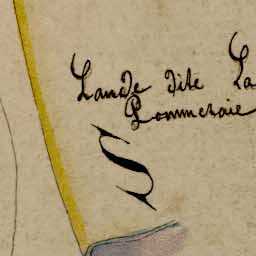 Lande dite La
Pommeraie
S